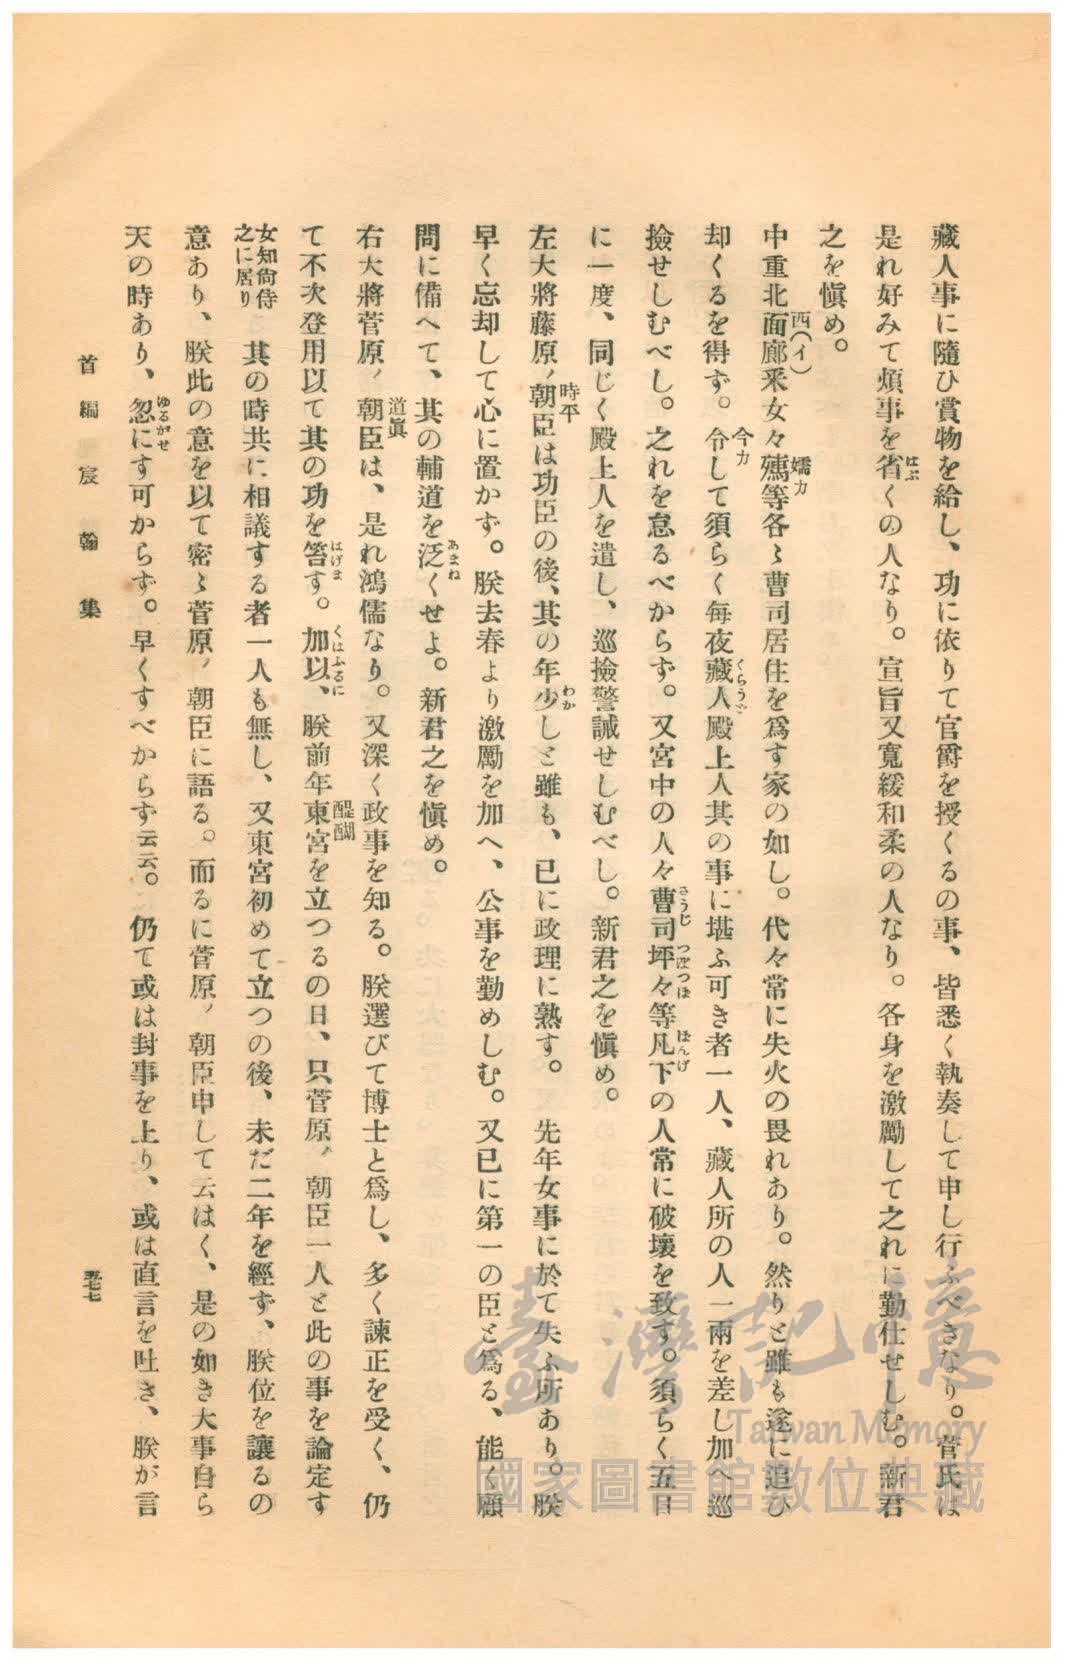 藏人事に隨ひ賞物を給し、功に依りて官爵を授くるの事、皆悉く執奏して申し行ふべきなり。菅氏は
是れ好みて煩事を省くの人なり。宣旨又寬緩和柔の人なり。各身を激勵して之れに勤仕せしむ。新君
はぶ
之を愼め。
中重北面廊釆女々孺等各〻曹司居住を爲す家の如し。代々常に失火の畏れあり。然りと雖も遂に追ひ
西(イ)
嬬カ
却くるを得ず。令して須らく每夜藏人殿上人其の事に堪ふ可き者一人、藏人所の人一兩を差し加へ巡
今カ
くらうど
撿せしむべし。之れを怠るべからず。又宮中の人々曹司坪々等凡下の人常に破壞を致す。須らく五日
さうじ
つぼつぼ
ぼんげ
に一度、同じく殿上人を遣し、巡撿警誡せしむべし。新君之を愼め。
左大將藤原ノ朝臣は功臣の後、其の年少しと雖も、已に政理に熟す。先年女事に於て失ふ所あり。朕
時平
わか
早く忘却して心に置かず。朕去春より激勵を加へ、公事を勤めしむ。又已に第一の臣と爲る、能く顧
問に備へて、其の輔道を泛くせよ。新君之を愼め。
あまね
右大將菅原ノ朝臣は、是れ鴻儒なり。又深く政事を知る。朕選びて博士と爲し、多く諫正を受く、仍
道眞
て不次登用以て其の功を答す。加以、朕前年東宮を立つるの日、只菅原ノ朝臣一人と此の事を論定す
はげま
くはふるに
醍醐
女知尙侍
之に居り
其の時共に相議する者一人も無し、又東宮初めて立つの後、未だ二年を經ず、朕位を讓るの
意あり、朕此の意を以て密〻菅原ノ朝臣に語る。而るに菅原ノ朝臣申して云はく、是の如き大事自ら
天の時あり、忽にす可からず。早くすべからず云云。仍て或は封事を上り、或は直言を吐き、朕が言
ゆるがせ
首編 宸翰集
五七七
臺灣記憶
Taiwan Memory
國家圖書館數位典藏